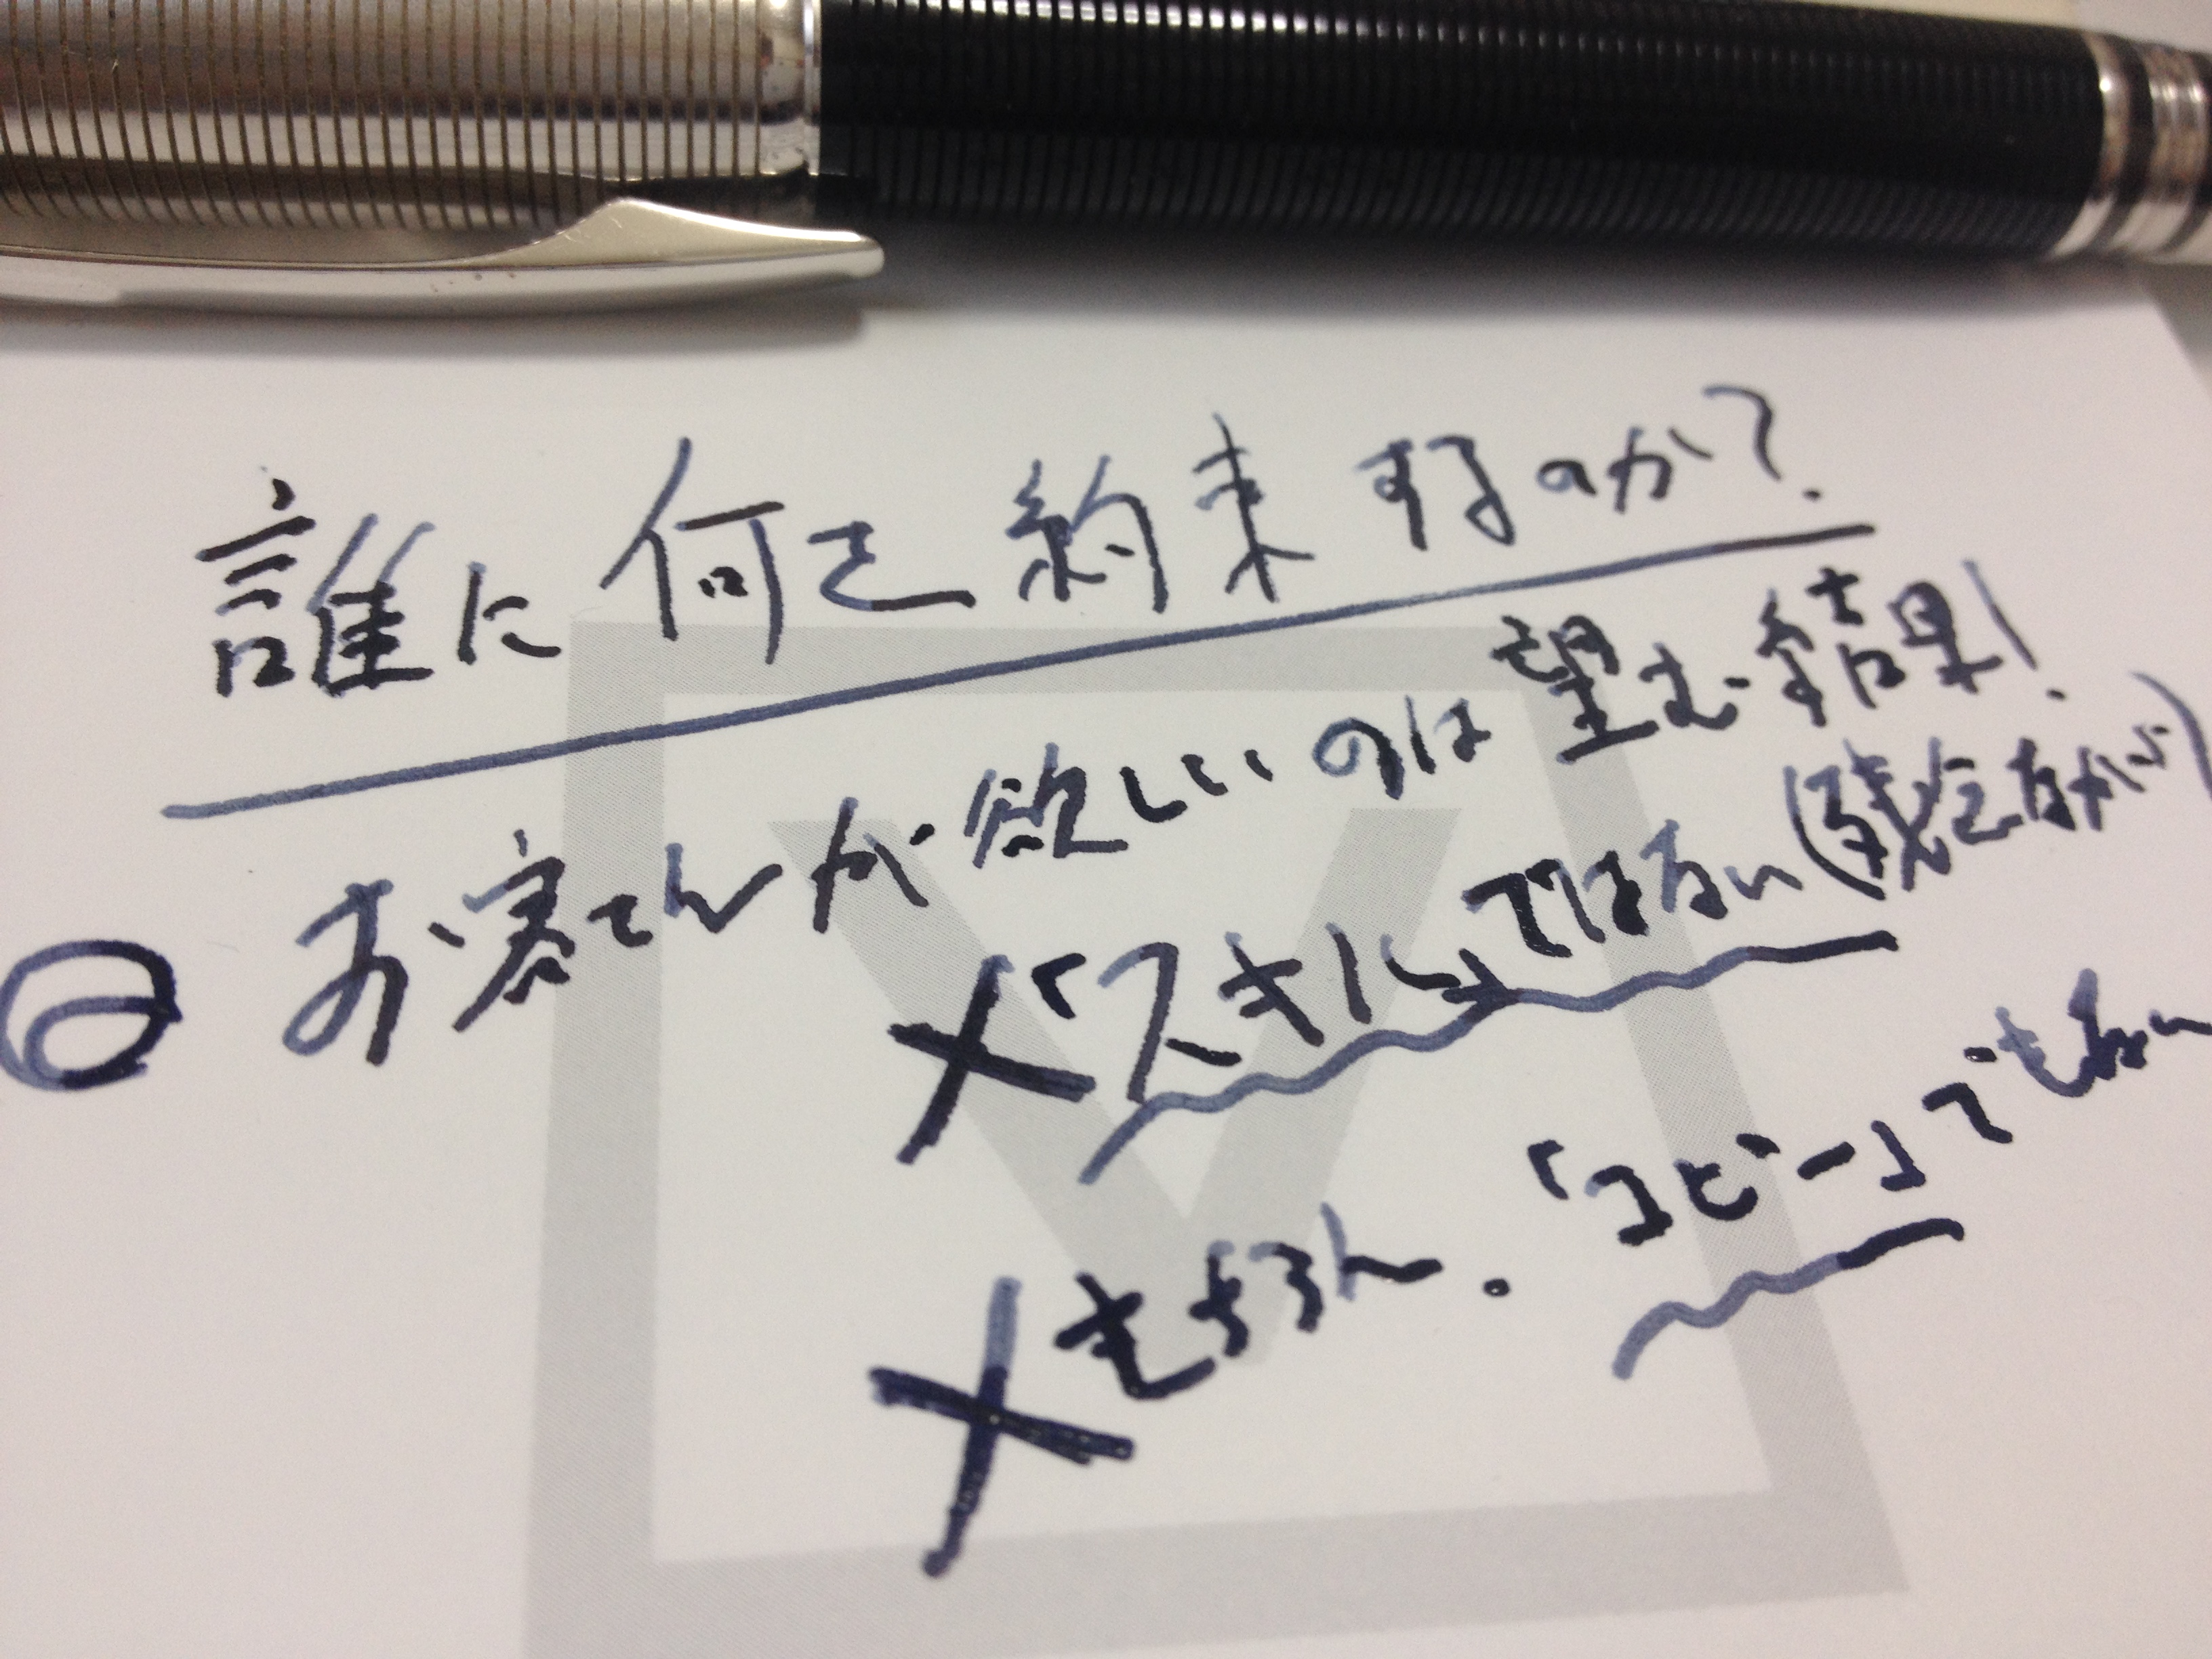 誰に何を約束するのか?
お客さんが欲しいのは望む結果!
×「スキル」ではない(残念ながら)
×もちろん.「コピー」でもない